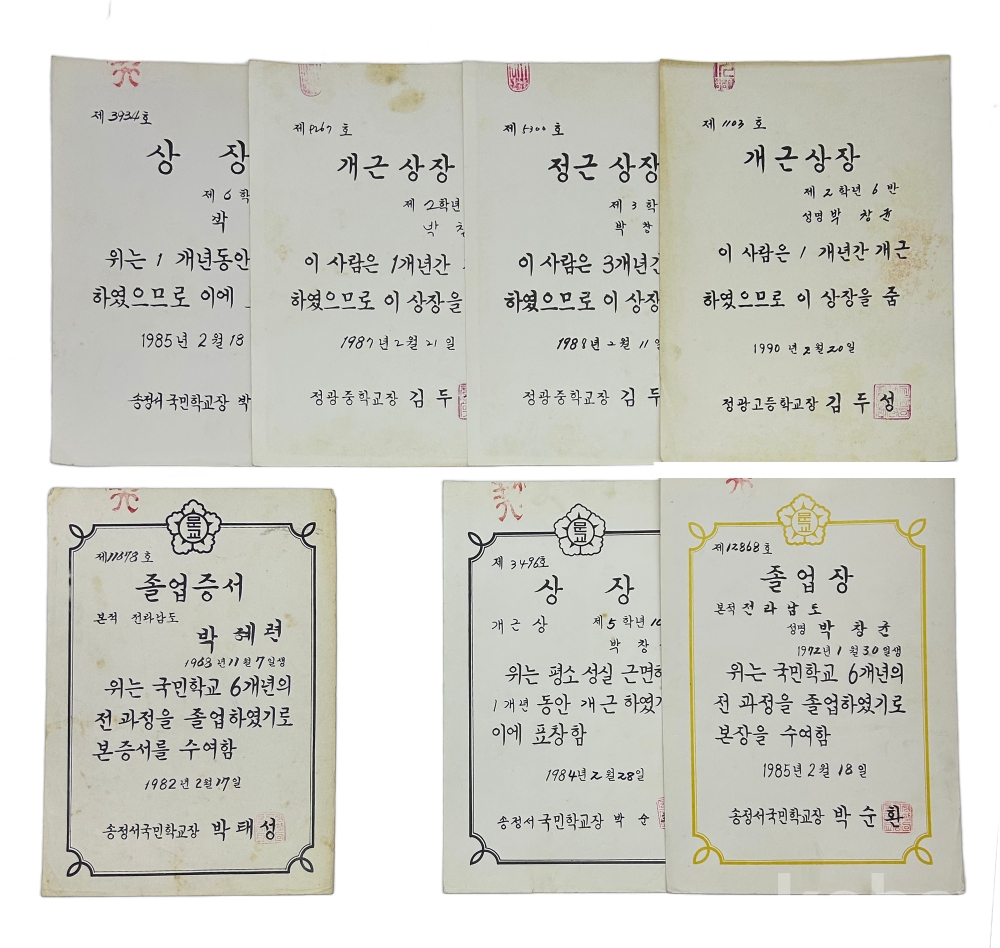 제 3934 호
상 장
제 6 학
박
위는 1 개년동안
하였으므로 이에
1985 년 2 월 18
송정서국민학교장 박
제 9267 호
개근상장
제 2학년
박 창
이 사람은 1개년간
하였으므로 이 상장을
1987 년 2 월 21 일
정광중학교장 김 두
제 5300 호
정근상장
제 3 학
박 창
이 사람은 3개년간
하였으므로 이 상장
1988 년 2 월 11 일
정광중학교장 김 두
제 1103 호
개근상장
제 2 학년 6 반
성명 박 창 균
이 사람은 1 개년간 개근
하였으므로 이 상장을 줌
1990 년 2 월 20 일
정광고등학교장 김 두 성
국교
제11878 호
졸업증서
본적 전라남도
박 혜 련
1963 년 11 월 7 일생
위는 국민학교 6개년의
전 과정을 졸업하였기로
본증서를 수여함
1982 년 2 월 17 일
송정서국민학교장 박 태 성
국교
제 3496호
상 장
개 근 상 제 5 학년 10
박 창
위는 평소 성실 근면하
1 개년 동안 개근 하였기
이에 표창함
1984 년 2 월 28 일
송정서국민학교장 박 순
국교
제12868 호
졸 업 장
본적 전 라 남 도
성명 박 창 균
1972 년 1 월 30 일생
위는 국민학교 6개년의
전 과정을 졸업하였기로
본장을 수여함
1985 년 2 월 18 일
송정서국민학교장 박 순 환